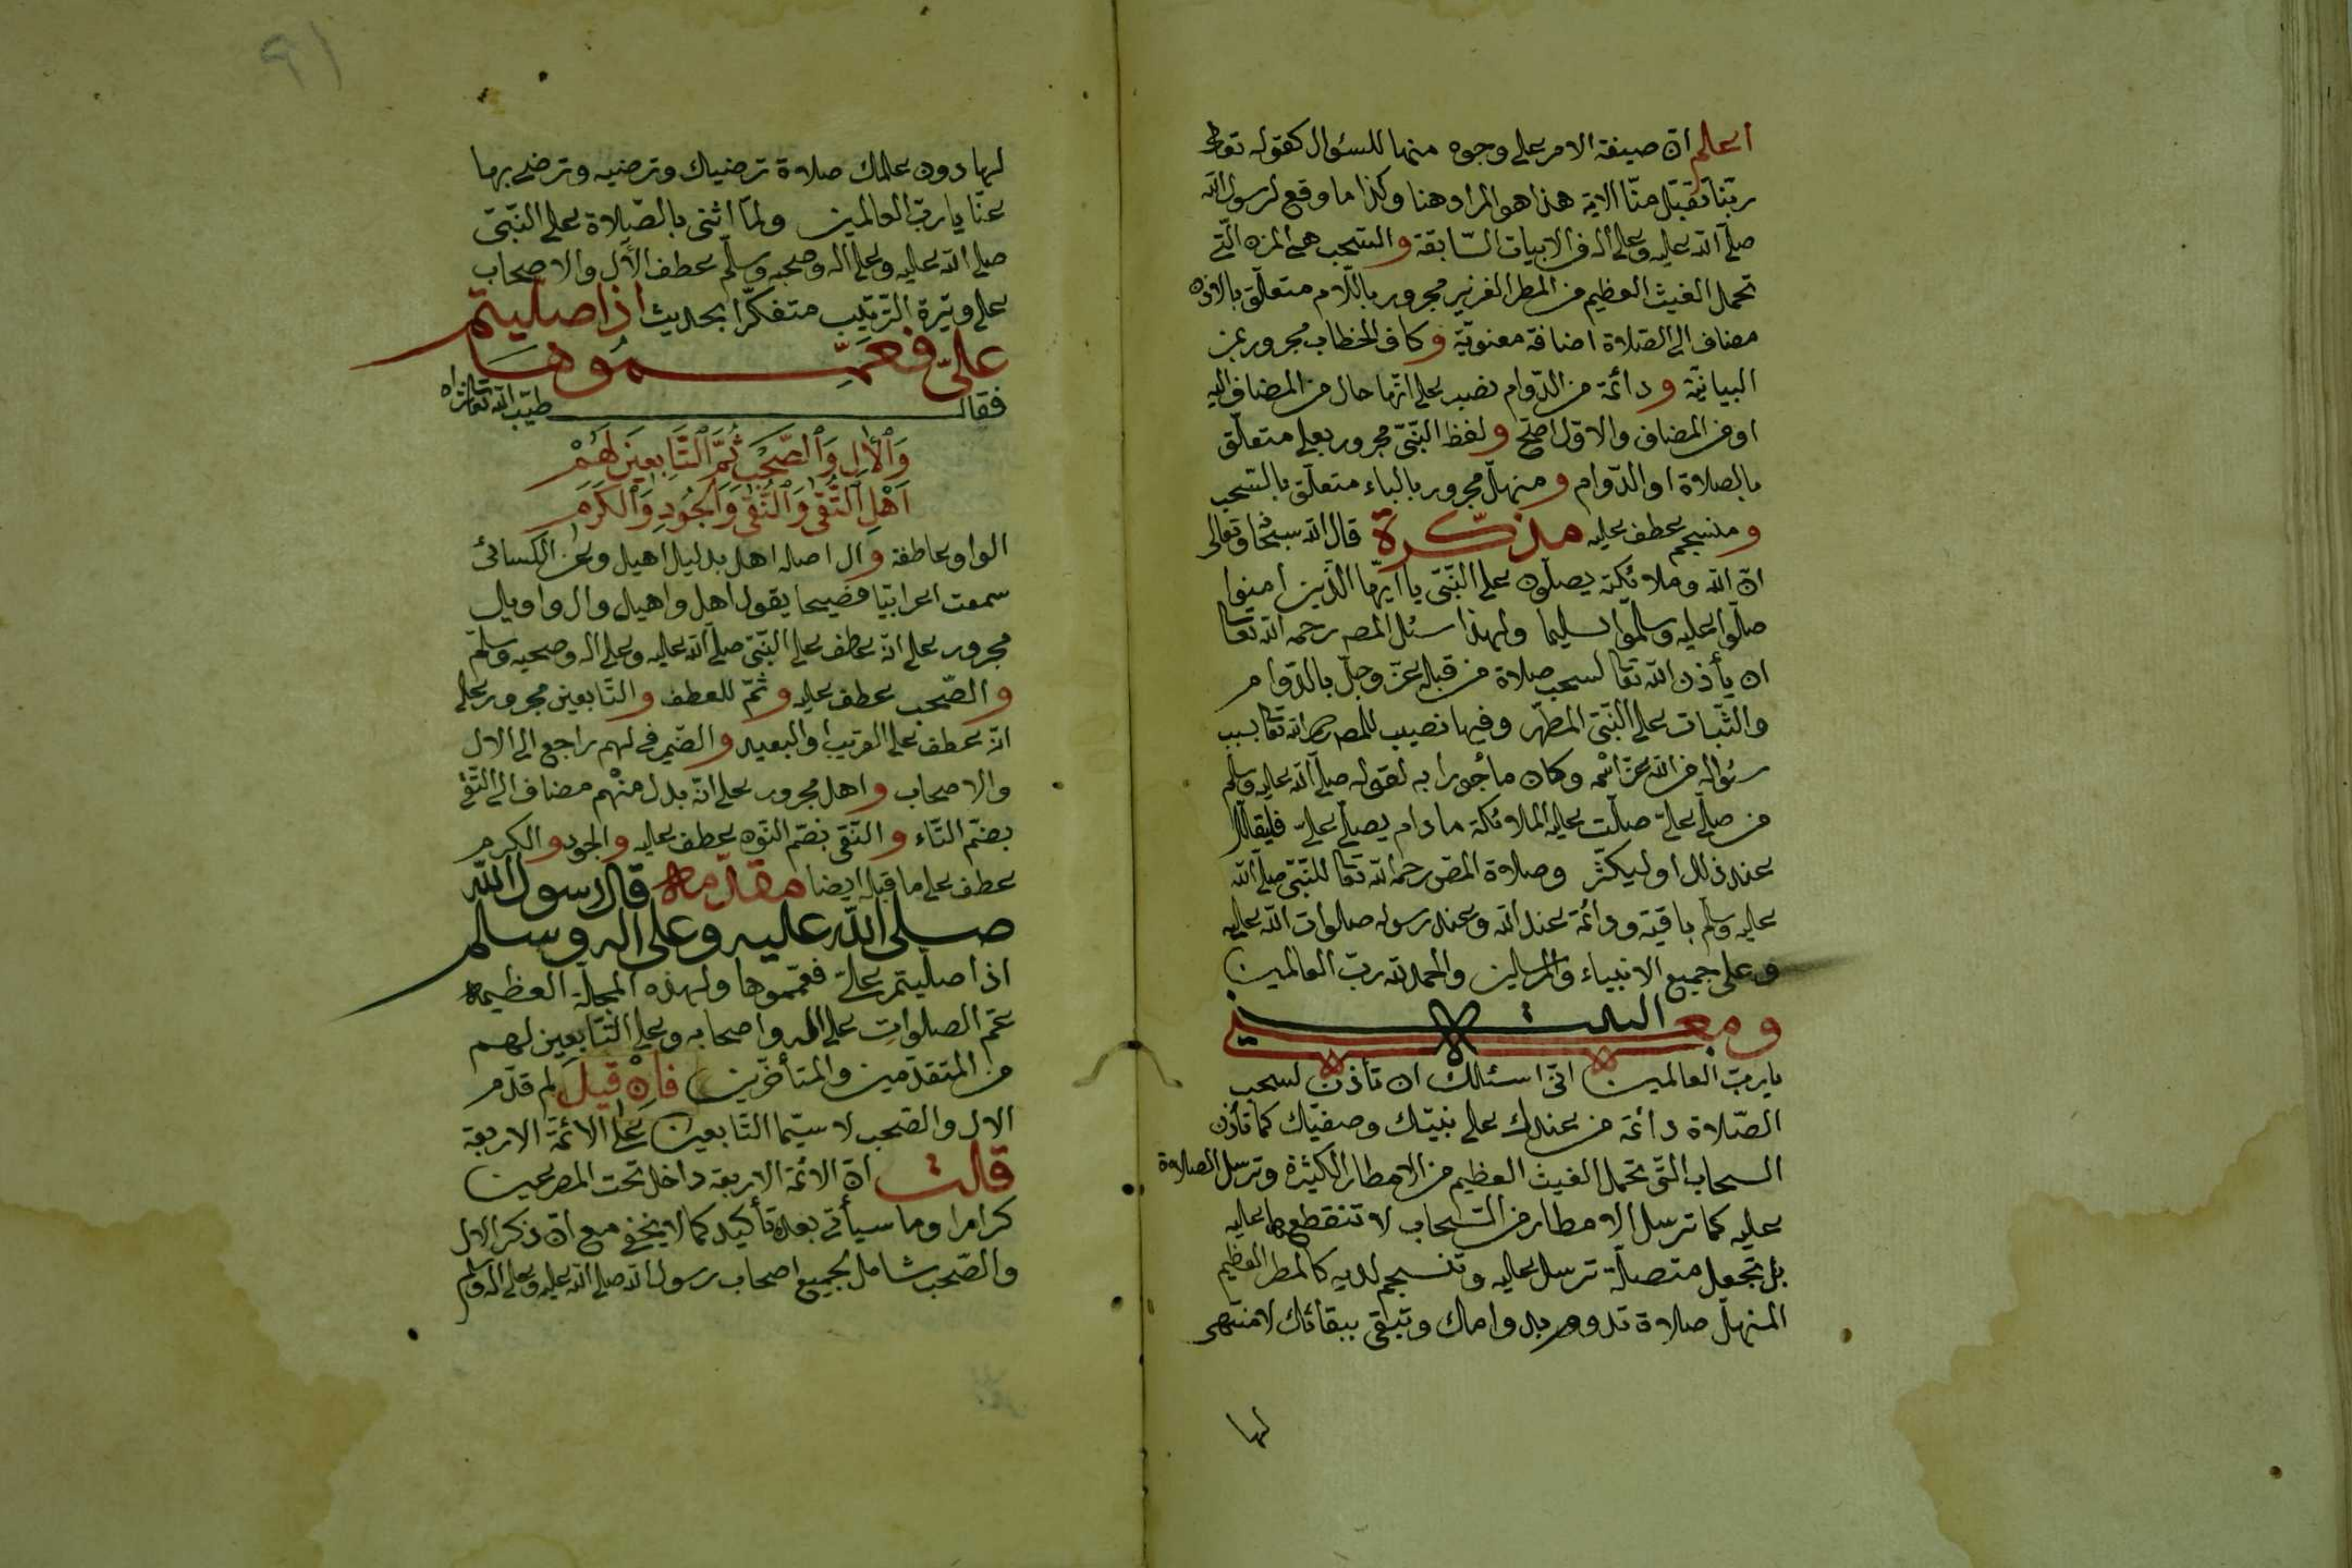 اعلم ان صيغة الامر على وجوه منها للسئوال كقوله تعالى
ربّنا تقبّل منّا الاية هذا هو المراد هنا وكذا ما وقع لرسول الله
صلّى الله عليه وعلى اله في الابيات السّابقة والسّحب هى المزن الّتى
تحمل الغيث العظيم من المطر الغزير مجرور باللّام متعلّق بالاذن
مضاف الى الصّلاة اضافة معنويّة وكاف الخطاب مجرور بمن
البيانيّة ودائمة من الدّوام نصب على انّها حال من المضاف اليه
او من المضاف والاوّل اصحّ ولفظ النّبىّ مجرور بعلى متعلّق
بالصلاة او الدّوام ومنهلّ مجرور بالباء متعلّق بالسّحب
ومنسجم عطف عليه مذكّرة قال الله سبحانه وتعالى
انّ الله وملائكته يصلّون على النّبىّ يا ايّها الّذين امنوا
صلّوا عليه وسلّموا تسليما ولهذا سئل المص رحمه الله تعا
ان يأذن الله تعا لسحب صلاة من قبله عزّ وجلّ بالدّوام
والثّبات على النّبىّ المطهّر وفيها نصيب للمص رحمه الله تعا بسبب
سئواله من الله عزّ اسمه وكان مأجورا به لقوله صلّى الله عليه وسلّم
من صلّى علىّ صلّت عليه الملائكة ما دام يصلّى علىّ فليقلّل
عند ذلك او ليكثّر وصلاة المص رحمه الله تعا للنّبىّ صلّى الله
عليه وسلّم باقية ودائمة عند الله وعند رسوله صلوات الله عليه
وعلى جميع الانبياء والمرسلين والحمد لله ربّ العالمين
ومعنى البيت
يا ربّ العالمين انّى اسئلك ان تأذن لسحب
الصّلاة دائمة من عندك على نبيّك وصفيّك كما تأذن
السحاب الّتى تحمل الغيث العظيم من الامطار الكثيرة وترسل الصلاة
عليه كما ترسل الامطار من السّحاب لا تنقطعها عليه
بل تجعل متصلة ترسل عليه وتنسجم لديه كالمطر العظيم
المنهلّ صلاة تدوم بدوامك وتبقى ببقائك لا منتهى
لها
٩١
لها دون علمك صلاة ترضيك وترضيه وترضى بها
عنّا يا ربّ العالمين ولمّا اثنى بالصّلاة على النّبىّ
صلى الله عليه وعلى اله وصحبه وسلّم عطف الال والاصحاب
على وتيرة التّرتيب متفكّرا بحديث اذا صلّيتم
علىّ فعمّموها
فقال طيّب الله تعا ثراه
وَالْاٰلِ وَالصَّحْبِ ثُمَّ التَّابِعِينَ لَهُمْ
اَهْلِ التُّقٰى وَالنُّقٰى وَالْجُودِ وَالْكَرَمِ
الواو عاطفة وال اصله اهل بدليل اهيل وعن الكسائى
سمعت اعرابيّا فصيحا يقول اهل واهيل وال واويل
مجرور على انّه عطف على النّبىّ صلّى الله عليه وعلى اله وصحبه وسلّم
والصّحب عطف عليه وثمّ للعطف والتّابعين مجرور على
انّه عطف على القريب او البعيد والضّمير فى لهم راجع الى الال
والاصحاب واهل مجرور على انّه بدل منهم مضاف الى التّقى
بضمّ التّاء والنّقى بضمّ النّون عطف عليه والجود والكرم
عطف على ما قبله ايضا مقدّمة قال رسول الله
صلى الله عليه وعلى اله وسلم
اذا صلّيتم علىّ فعمّموها ولهذه المجلّة العظيمة
عمّ الصلوات على اله واصحابه وعلى التّابعين لهم
من المتقدّمين والمتأخّرين فان قيل لم قدّم
الال والصّحب لا سيّما التّابعين على الائمّة الاربعة
قلت انّ الائمّة الاربعة داخل تحت المصرعين
كراما وما سيأتى بعده تأكيد كما لا يخفى مع انّ ذكر الال
والصّحب شامل لجميع اصحاب رسول الله صلى الله عليه وعلى اله وسلم